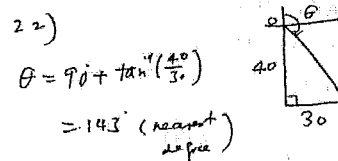 22)
θ = 90° + tan⁻¹(40/30)
= 143° (nearest degree)
θ
40
30